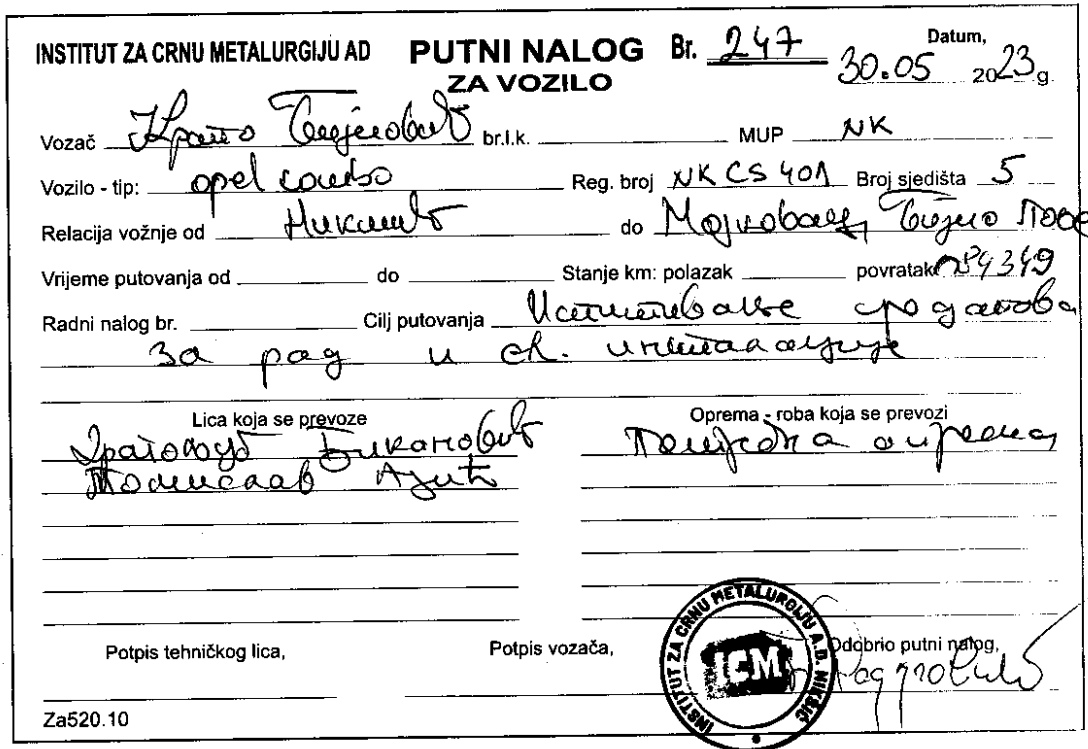 INSTITUT ZA CRNU METALURGIJU AD PUTNI NALOG Br. 247 Datum,
ZA VOZILO 30.05 2023 g.
Vozač br.l.k. MUP NK
Vozilo - tip: opel combo Reg. broj NK CS 401 Broj sjedišta 5
Relacija vožnje od Никшић do Мојковац, Бијело Поље
Vrijeme putovanja od do Stanje km: polazak povratak 84349
Radni nalog br. Cilj putovanja Испитивање
за рад и ел. инсталације
Lica koja se prevoze Oprema - roba koja se prevozi
опрема
Томислав Аџић
Potpis tehničkog lica, Potpis vozača, Odobrio putni nalog,
INSTITUT ZA CRNU METALURGIJU A.D. NIKŠIĆ
ICM
Za520.10